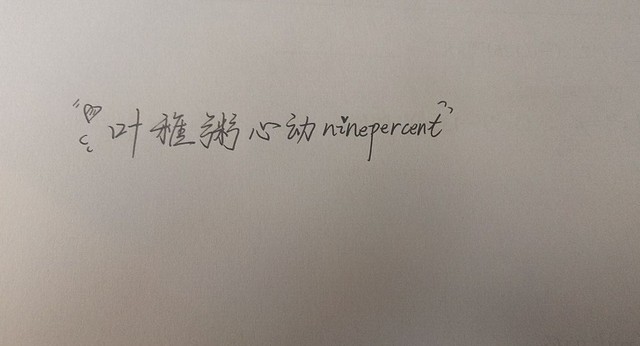 “叶稚粥心动ninepercent”